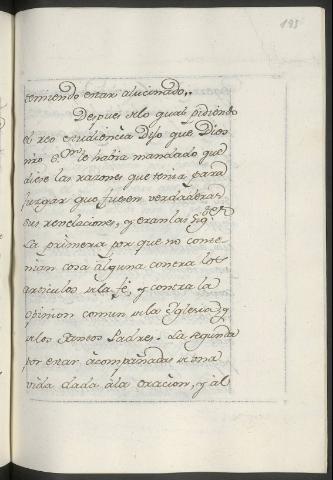 193
temiendo estar alucinado,.
Despues de lo qual pidiendo
el reo audiencia Dijo que Dios
nro Sor. le habia mandado que
diese las razones que tenia para
juzgar que fuesen verdaderas
sus revelaciones, y eran las sigtes
La primera por que no conte-
nian cosa alguna contra los
articulos de la fe, y contra la
opinion comun de la Yglesia, y
de los Santos Padres. La segunda
por estar acompañadas de una
vida dada á la oracion, y al